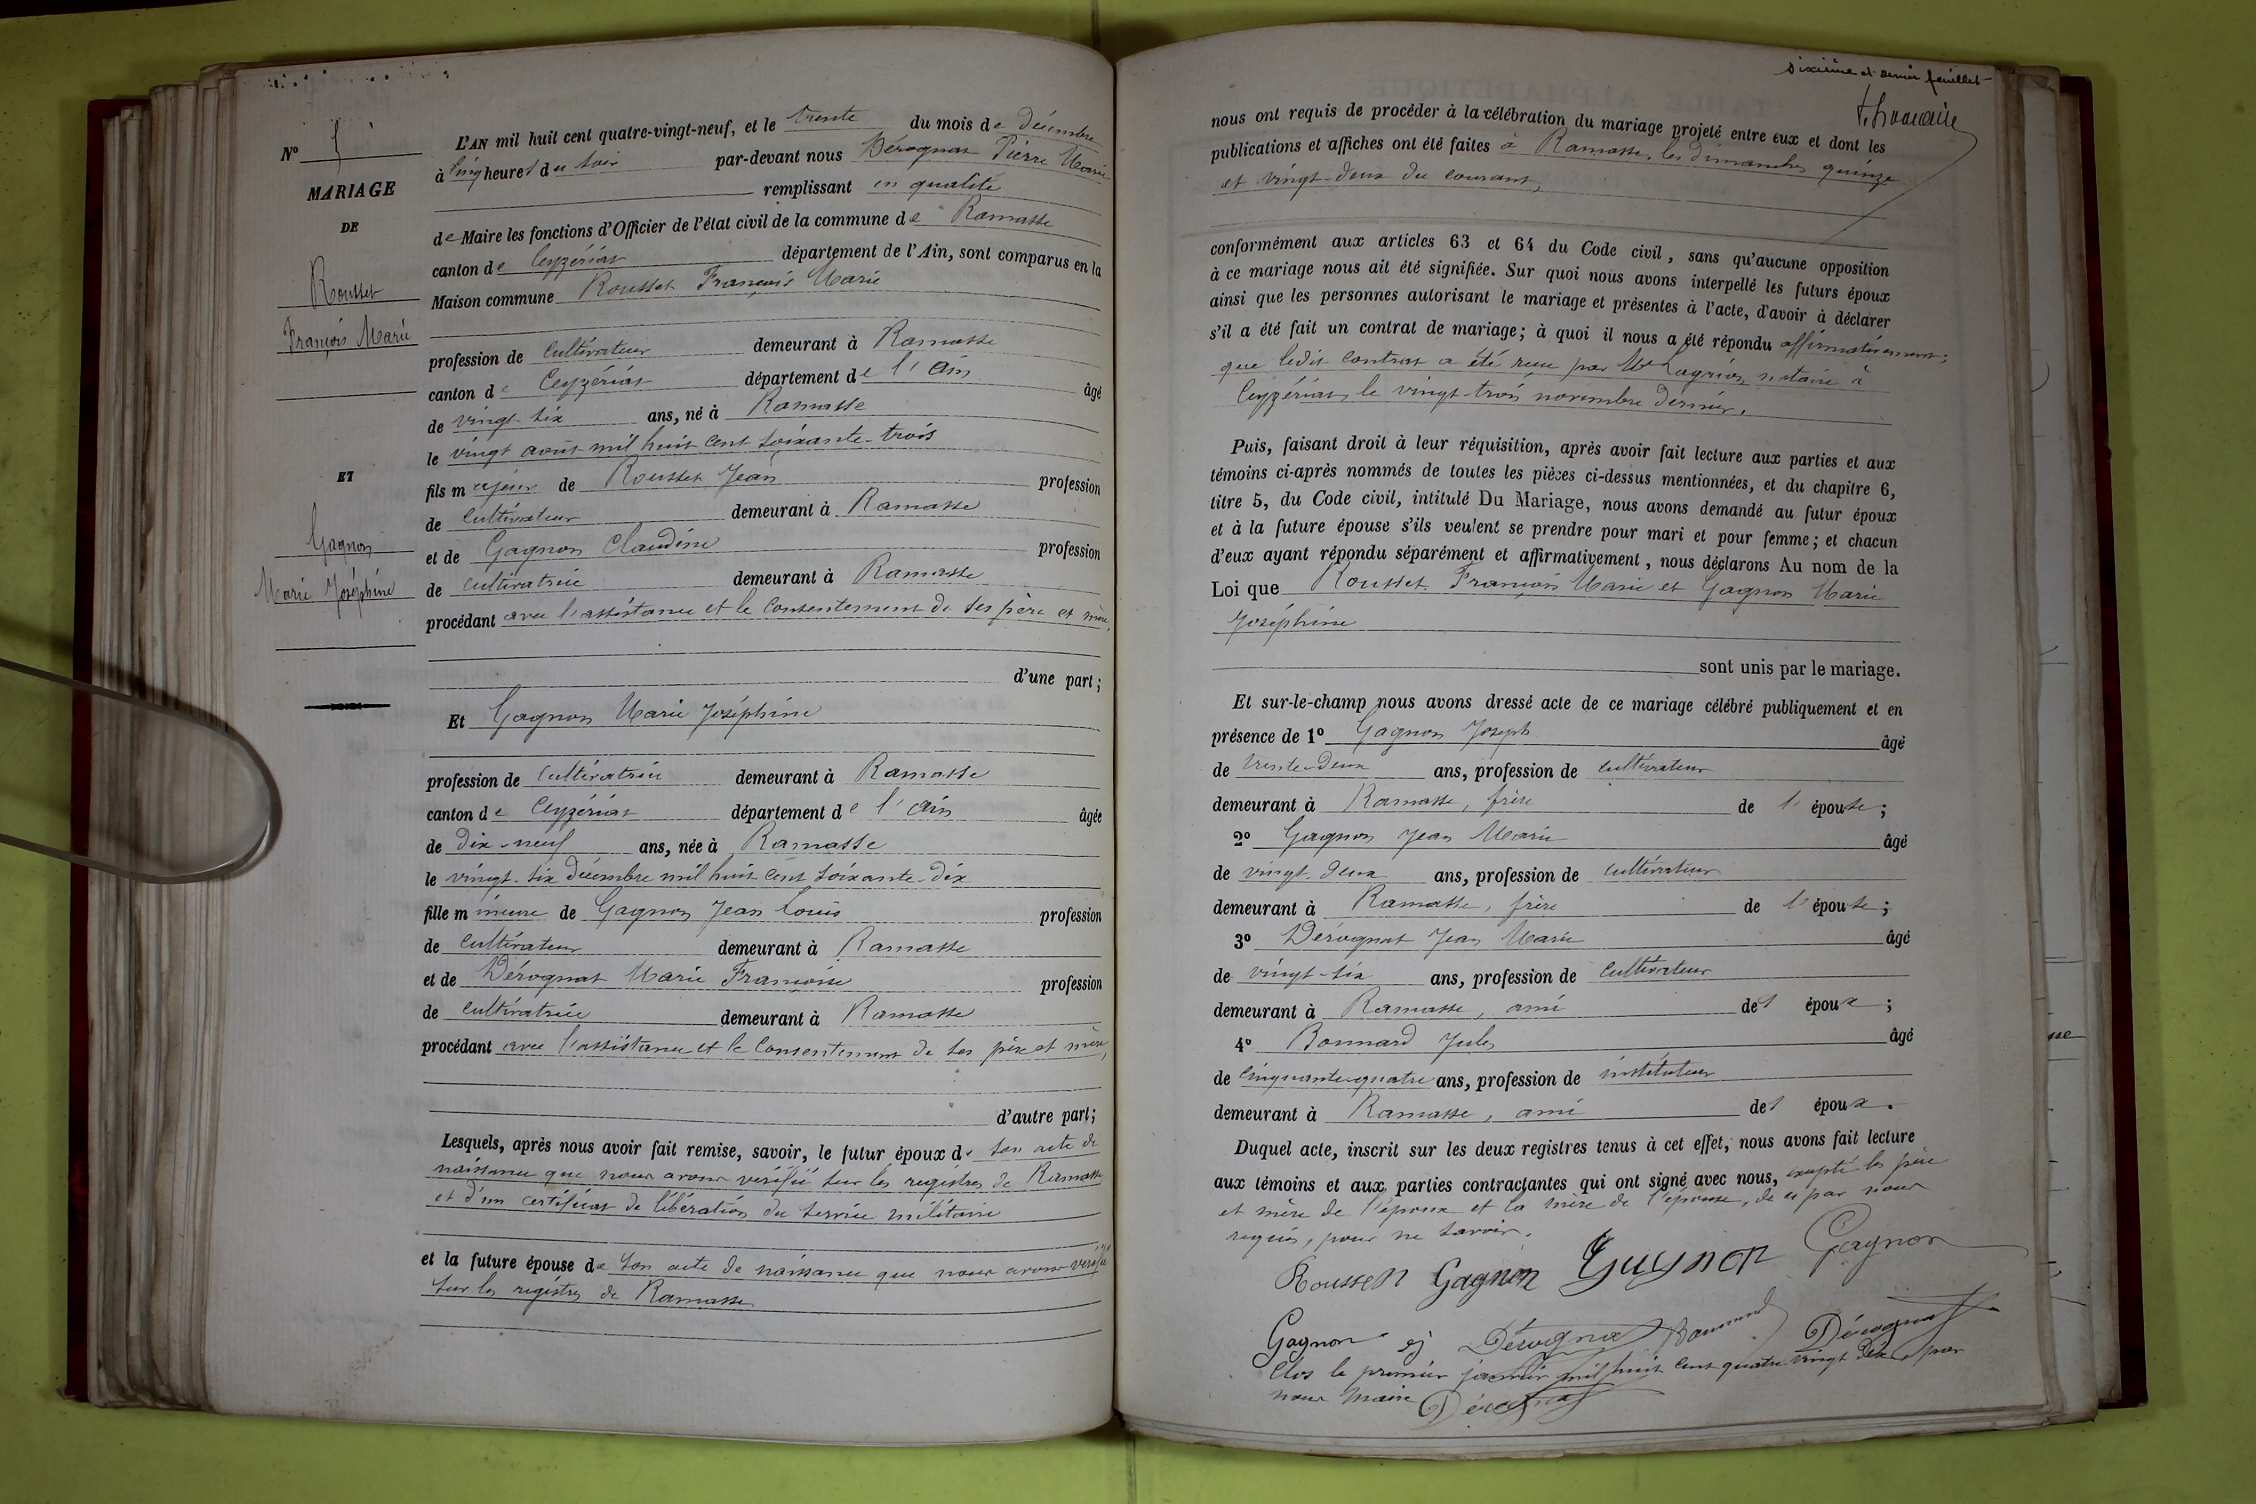 N° 5
MARIAGE
DE
Rousset
François Marie
ET
Gagnon
Marie Joséphine
L'AN mil huit cent quatre-vingt-neuf, et le trente du mois de décembre
à cinq heures du soir par-devant nous Dérognat Pierre Marie
remplissant en qualité
de Maire les fonctions d'Officier de l'état civil de la commune de Ramasse
canton de Ceyzériat département de l'Ain, sont comparus en la
Maison commune Rousset François Marie
profession de cultivateur demeurant à Ramasse
canton de Ceyzériat département de l'Ain âgé
de vingt-six ans, né à Ramasse
le vingt août mil huit cent soixante-trois
fils majeur de Rousset Jean profession
de cultivateur demeurant à Ramasse
et de Gagnon Claudine profession
de cultivatrice demeurant à Ramasse
procédant avec l'assistance et le consentement de ses père et mère,
d'une part;
Et Gagnon Marie Joséphine
profession de cultivatrice demeurant à Ramasse
canton de Ceyzériat département de l'Ain âgée
de dix-neuf ans, née à Ramasse
le vingt-six décembre mil huit cent soixante-dix
fille mineure de Gagnon Jean Louis profession
de cultivateur demeurant à Ramasse
et de Dérognat Marie Françoise profession
de cultivatrice demeurant à Ramasse
procédant avec l'assistance et le consentement de ses père et mère,
d'autre part;
Lesquels, après nous avoir fait remise, savoir, le futur époux de son acte de
naissance que nous avons vérifié sur les registres de Ramasse
et d'un certificat de libération du service militaire
et la future épouse de son acte de naissance que nous avons vérifié
sur les registres de Ramasse
sixième et dernier feuillet
nous ont requis de procéder à la célébration du mariage projeté entre eux et dont les
publications et affiches ont été faites à Ramasse, les dimanches quinze
et vingt-deux du courant,
conformément aux articles 63 et 64 du Code civil, sans qu'aucune opposition
à ce mariage nous ait été signifiée. Sur quoi nous avons interpellé les futurs époux
ainsi que les personnes autorisant le mariage et présentes à l'acte, d'avoir à déclarer
s'il a été fait un contrat de mariage; à quoi il nous a été répondu affirmativement;
que ledit contrat a été reçu par Me notaire à
Ceyzériat, le vingt-trois novembre dernier.
Puis, faisant droit à leur réquisition, après avoir fait lecture aux parties et aux
témoins ci-après nommés de toutes les pièces ci-dessus mentionnées, et du chapitre 6,
titre 5, du Code civil, intitulé Du Mariage, nous avons demandé au futur époux
et à la future épouse s'ils veulent se prendre pour mari et pour femme; et chacun
d'eux ayant répondu séparément et affirmativement, nous déclarons Au nom de la
Loi que Rousset François Marie et Gagnon Marie
Joséphine
sont unis par le mariage.
Et sur-le-champ nous avons dressé acte de ce mariage célébré publiquement et en
présence de 1° Gagnon Joseph âgé
de trente-deux ans, profession de cultivateur
demeurant à Ramasse, frère de l'épouse;
2° Gagnon Jean Marie âgé
de vingt-deux ans, profession de cultivateur
demeurant à Ramasse, frère de l'épouse;
3° Dérognat Jean Marie âgé
de vingt-six ans, profession de cultivateur
demeurant à Ramasse, ami de l'époux;
4° Bonnard Jules âgé
de cinquante-quatre ans, profession de instituteur
demeurant à Ramasse, ami de l'époux.
Duquel acte, inscrit sur les deux registres tenus à cet effet, nous avons fait lecture
aux témoins et aux parties contractantes qui ont signé avec nous, excepté les père
et mère de l'époux et la mère de l'épouse, de ce par nous
requis, pour ne savoir.
Rousset Gagnon Guynon Gagnon
Gagnon j Dérognat Bonnard Dérognat
Clos le premier janvier mil huit cent quatre vingt dix, par
nous Maire Dérognat